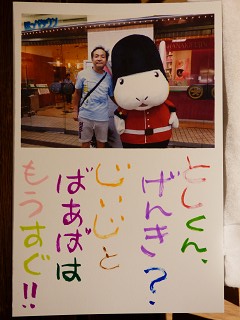 としくん、
げんき？
じぃじと
ばあばは
もうすぐ!!